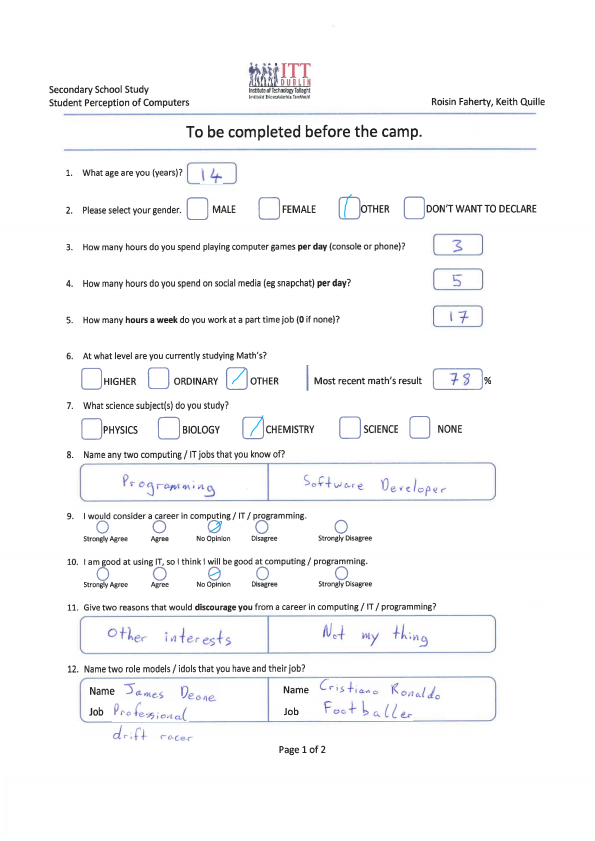 ITT
DUBLIN
Institute of Technology Tallaght
Secondary School Study
Student Perception of Computers
Roisin Faherty, Keith Quille
To be completed before the camp.
1. What age are you (years)? 14
2. Please select your gender. MALE FEMALE OTHER DON'T WANT TO DECLARE
3. How many hours do you spend playing computer games per day (console or phone)? 3
4. How many hours do you spend on social media (eg snapchat) per day? 5
5. How many hours a week do you work at a part time job (0 if none)? 17
6. At what level are you currently studying Math's?
HIGHER ORDINARY OTHER Most recent math's result 78 %
7. What science subject(s) do you study?
PHYSICS BIOLOGY CHEMISTRY SCIENCE NONE
8. Name any two computing / IT jobs that you know of?
Programming Software Developer
9. I would consider a career in computing / IT / programming.
Strongly Agree Agree No Opinion Disagree Strongly Disagree
10. I am good at using IT, so I think I will be good at computing / programming.
Strongly Agree Agree No Opinion Disagree Strongly Disagree
11. Give two reasons that would discourage you from a career in computing / IT / programming?
Other interests Not my thing
12. Name two role models / idols that you have and their job?
Name James Deane Name Cristiano Ronaldo
Job Professional Job Footballer
drift racer
Page 1 of 2